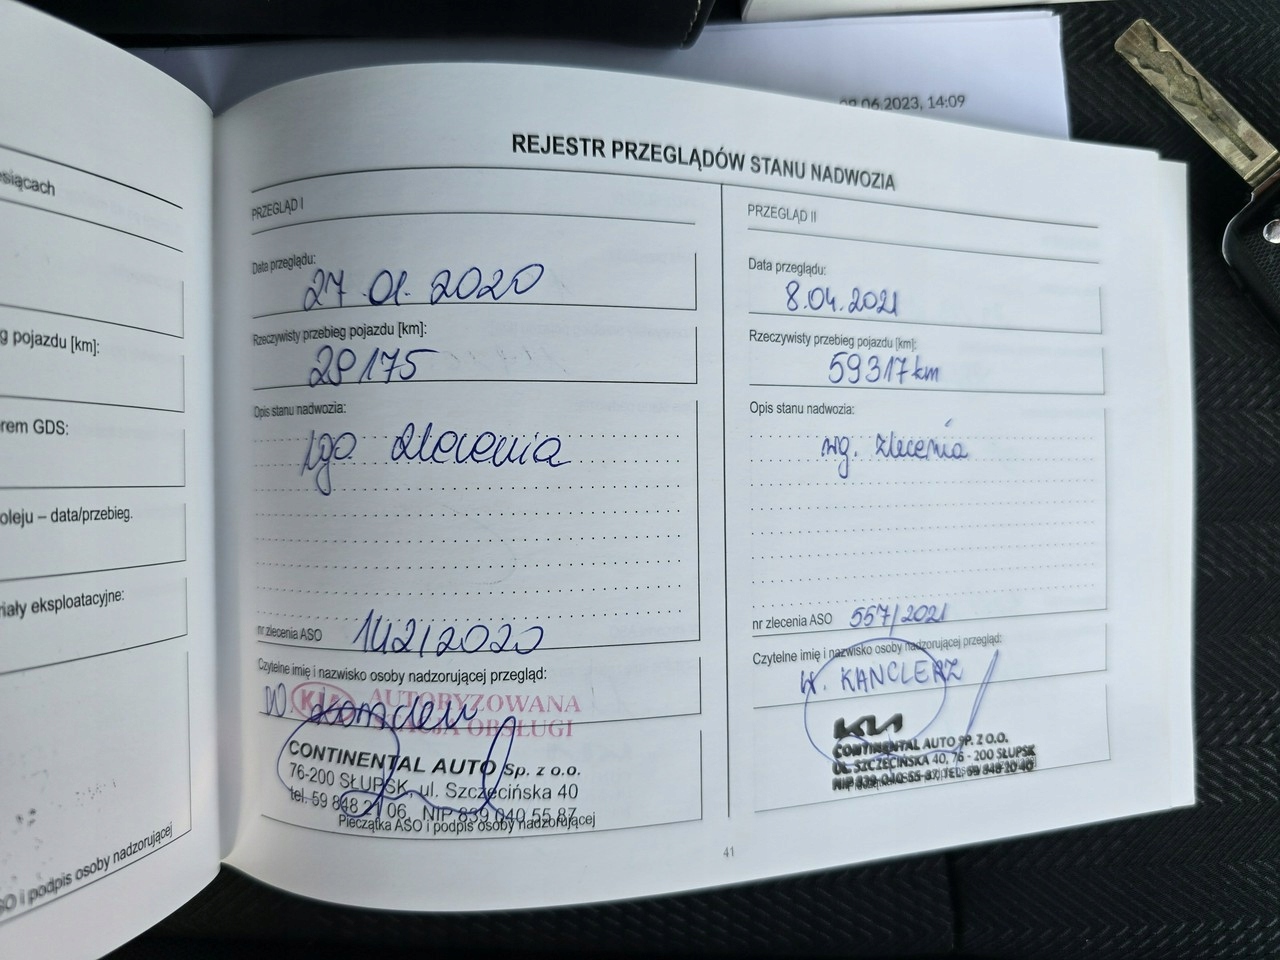 09.06.2023, 14:09
siącach
g pojazdu [km]:
rem GDS:
oleju – data/przebieg.
riały eksploatacyjne:
SO i podpis osoby nadzorującej
REJESTR PRZEGLĄDÓW STANU NADWOZIA
PRZEGLĄD I
Data przeglądu:
27.01.2020
Rzeczywisty przebieg pojazdu [km]:
29175
Opis stanu nadwozia:
zlecenia
nr zlecenia ASO 142/2020
Czytelne imię i nazwisko osoby nadzorującej przegląd:
W.
KIA AUTORYZOWANA
STACJA OBSŁUGI
CONTINENTAL AUTO Sp. z o.o.
76-200 SŁUPSK, ul. Szczecińska 40
tel. 59 848 21 06, NIP 839 040 55 87
Pieczątka ASO i podpis osoby nadzorującej
PRZEGLĄD II
Data przeglądu:
8.04.2021
Rzeczywisty przebieg pojazdu [km]:
59317 km
Opis stanu nadwozia:
wg. zlecenia
nr zlecenia ASO 557/2021
Czytelne imię i nazwisko osoby nadzorującej przegląd:
W. KANCLERZ
KIA
CONTINENTAL AUTO SP. Z O.O.
UL. SZCZECIŃSKA 40, 76 - 200 SŁUPSK
NIP 839-040-55-87, TEL. 59 848 20 40
41